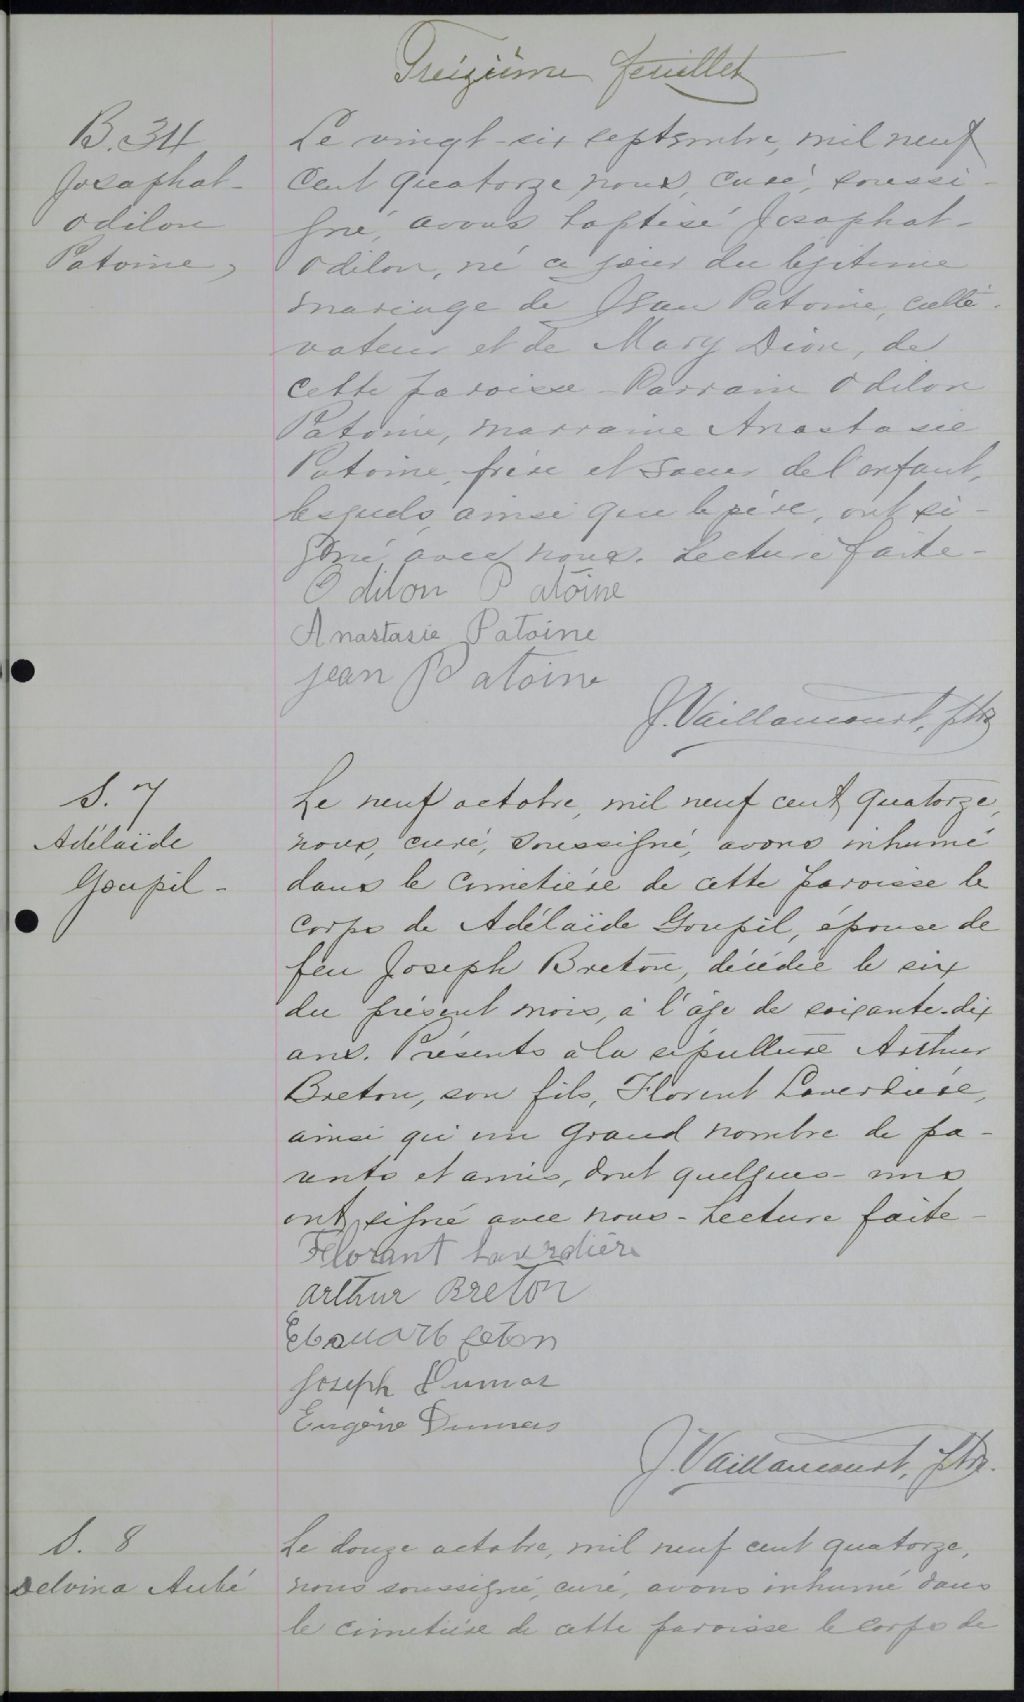 Treizième feuillet
B. 34
Josaphat-
Odilon
Patoine,
Le vingt-six septembre, mil neuf
cent quatorze, nous, curé, soussi-
gné, avons baptisé Josaphat-
Odilon, né ce jour du légitime
mariage de Jean Patoine, culti-
vateur et de Mary Dion, de
cette paroisse - Parrain Odilon
Patoine, marraine Anastasie
Patoine, frère et soeur de l'enfant,
lesquels, ainsi que le père, ont si-
gné avec nous. Lecture faite -
Odilon Patoine
Anastasie Patoine
jean Patoine
J. Vaillancourt, ptre
S. 7
Adélaïde
Goupil -
Le neuf octobre, mil neuf cent quatorze,
nous, curé, soussigné, avons inhumé
dans le cimetière de cette paroisse le
corps de Adélaïde Goupil, épouse de
feu Joseph Breton, décédée le six
du présent mois, à l'âge de soixante-dix
ans. Présents à la sépulture Arthur
Breton, son fils, Florent Laverdière,
ainsi qu'un grand nombre de pa-
rents et amis, dont quelques-uns
ont signé avec nous - Lecture faite -
Florant Laverdière
arthur Breton
Joseph Dumas
Eugène Dumas
J. Vaillancourt, ptre.
S. 8
Delvina Aubé
Le douze octobre, mil neuf cent quatorze,
nous soussigné, curé, avons inhumé dans
le cimetière de cette paroisse le corps de